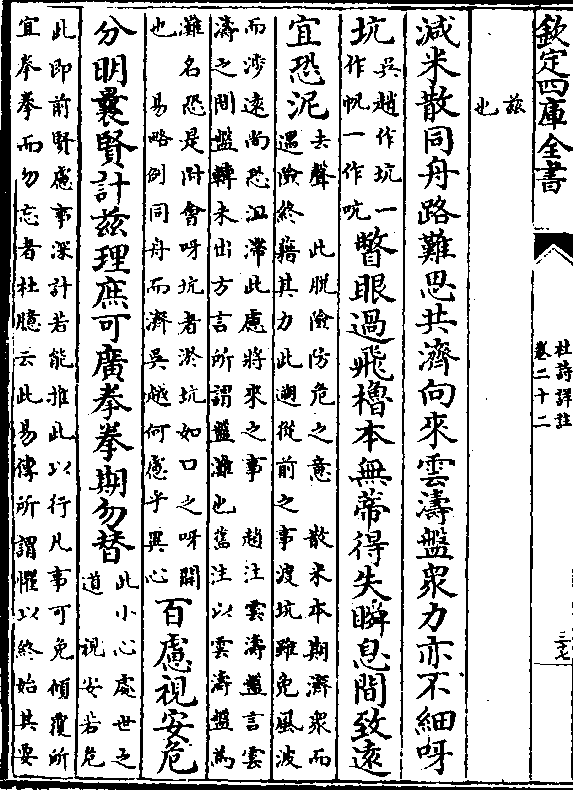 欽定四庫全書
杜詩詳註
卷二十二
三七
茲
也
減米散同舟路難思共濟向來雲濤盤衆力亦不細呀
坑
吳趙作坑一
作帆一作吭
瞥眼過飛櫓本無蔕得失瞬息間致遠
宜恐泥
去聲 此脱險防危之意 散米本期濟衆而
遇險終藉其力此遡從前之事渡坑雖免風波
而涉遠尚恐沮滯此慮將來之事 趙注雲濤盤言雲
濤之間盤轉未出方言所謂盤灘也舊注以雲濤盤為
灘名恐是附會呀坑者淤坑如口之呀開
也 易略例同舟而濟吳越何慮乎異心
百慮視安危
分明曩賢計茲理庶可廣拳拳期勿替
此小心處世之
道 視安若危
此即前賢慮事深計若能推此以行凡事可免傾覆所
宜拳拳而勿忘者杜臆云此易傳所謂懼以終始其要